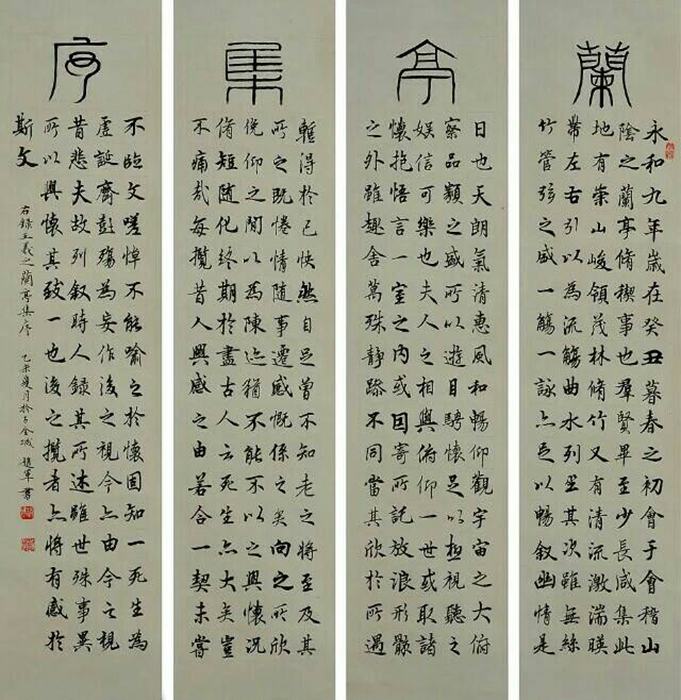 蘭
永和九年歲在癸丑暮春之初會于會稽山
陰之蘭亭脩稧事也羣賢畢至少長咸集此
地有崇山峻領茂林脩竹又有清流激湍暎
帶左右引以為流觴曲水列坐其次雖無絲
竹管弦之盛一觴一詠亦足以暢叙幽情是
亭
日也天朗氣清惠風和暢仰觀宇宙之大俯
察品類之盛所以遊目騁懷足以極視聽之
娛信可樂也夫人之相與俯仰一世或取諸
懷抱悟言一室之內或因寄所託放浪形骸
之外雖趣舍萬殊靜躁不同當其欣於所遇
集
暫得於己快然自足曾不知老之將至及其
所之既惓情隨事遷感慨係之矣向之所欣
俛仰之間以為陳迹猶不能不以之興懷況
脩短隨化終期於盡古人云死生亦大矣豈
不痛哉每攬昔人興感之由若合一契未嘗
序
不臨文嗟悼不能喻之於懷固知一死生為
虛誕齊彭殤為妄作後之視今亦由今之視
昔悲夫故列叙時人錄其所述雖世殊事異
所以興懷其致一也後之攬者亦將有感於
斯文
右錄王羲之蘭亭集序 乙未夏月於金城 趙軍書